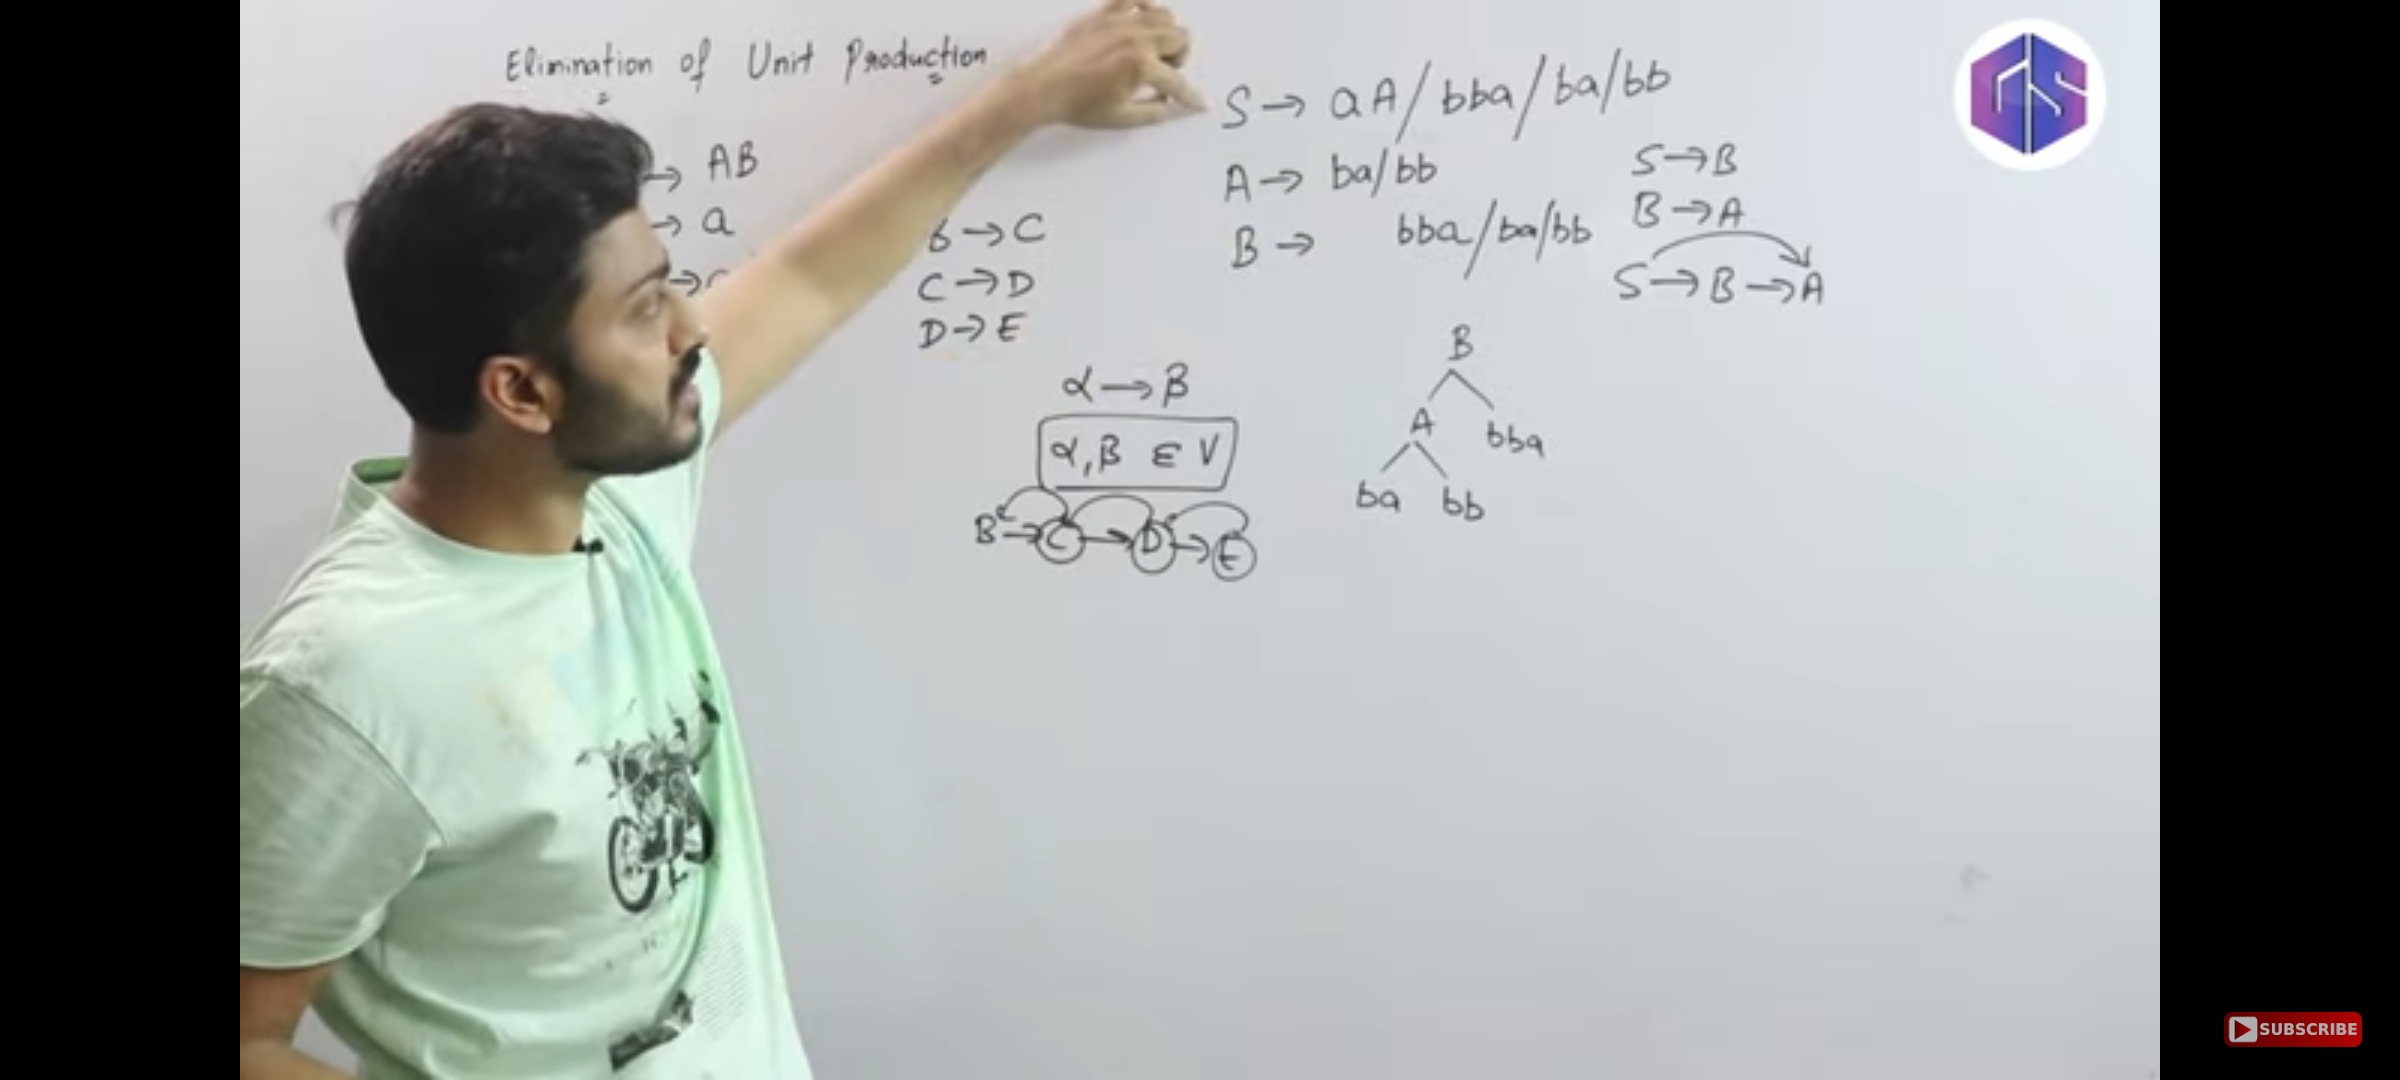 Elimination of Unit Production
→ AB
→ a
→
B → C
C → D
D → E
α → β
α, β ∈ V
B → C → D → E
S → aA / bba / ba / bb
A → ba / bb
B → bba / ba / bb
S → B
B → A
S → B → A
B
A bba
ba bb
GS
SUBSCRIBE